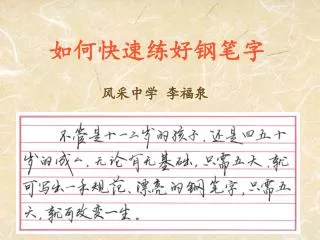 如何快速练好钢笔字
风采中学 李福泉
不管是十一二岁的孩子，还是四五十
岁的成人，无论有无基础，只需五天，就
可写出一手规范、漂亮的钢笔字，只需五
天，就可改变一生。